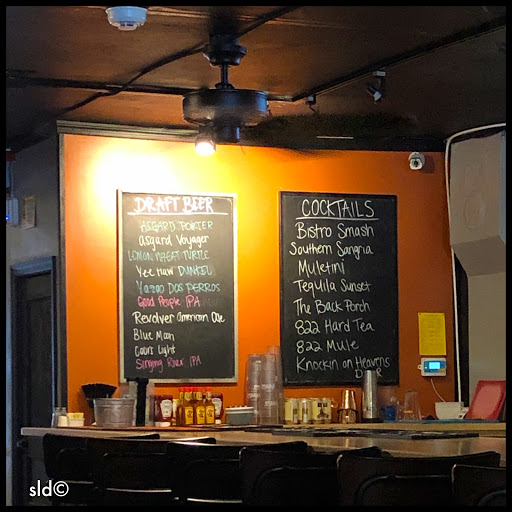 DRAFT BEER
ASGARD PORTER
Asgard Voyager
LEMON WHEAT TURTLE
Yee Haw DUNKEL
Yazoo DOS PERROS
Good People IPA
Revolver American One
Blue Moon
Coors Light
Singing River IPA
COCKTAILS
Bistro Smash
Southern Sangria
Muletini
Tequila Sunset
The Back Porch
822 Hard Tea
822 Mule
Knockin on Heavens
Door
sld©